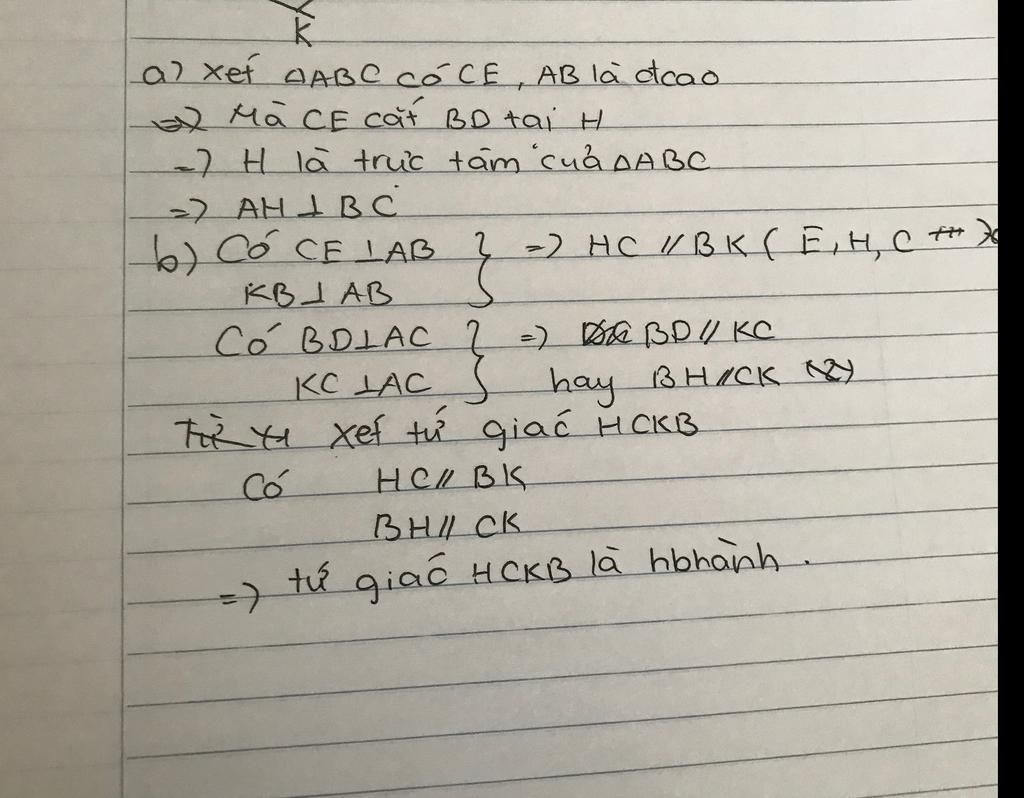 K
a) xét ΔABC có CE, AB là đcao
=> Mà CE cắt BD tại H
=> H là trực tâm của ΔABC
=> AH ⊥ BC
b) Có CE ⊥ AB } => HC // BK ( E, H, C
KB ⊥ AB
Có BD ⊥ AC } => BD // KC
KC ⊥ AC hay BH // CK (2)
Từ xét tứ giác HCKB
Có HC // BK
BH // CK
=> tứ giác HCKB là hbhành.